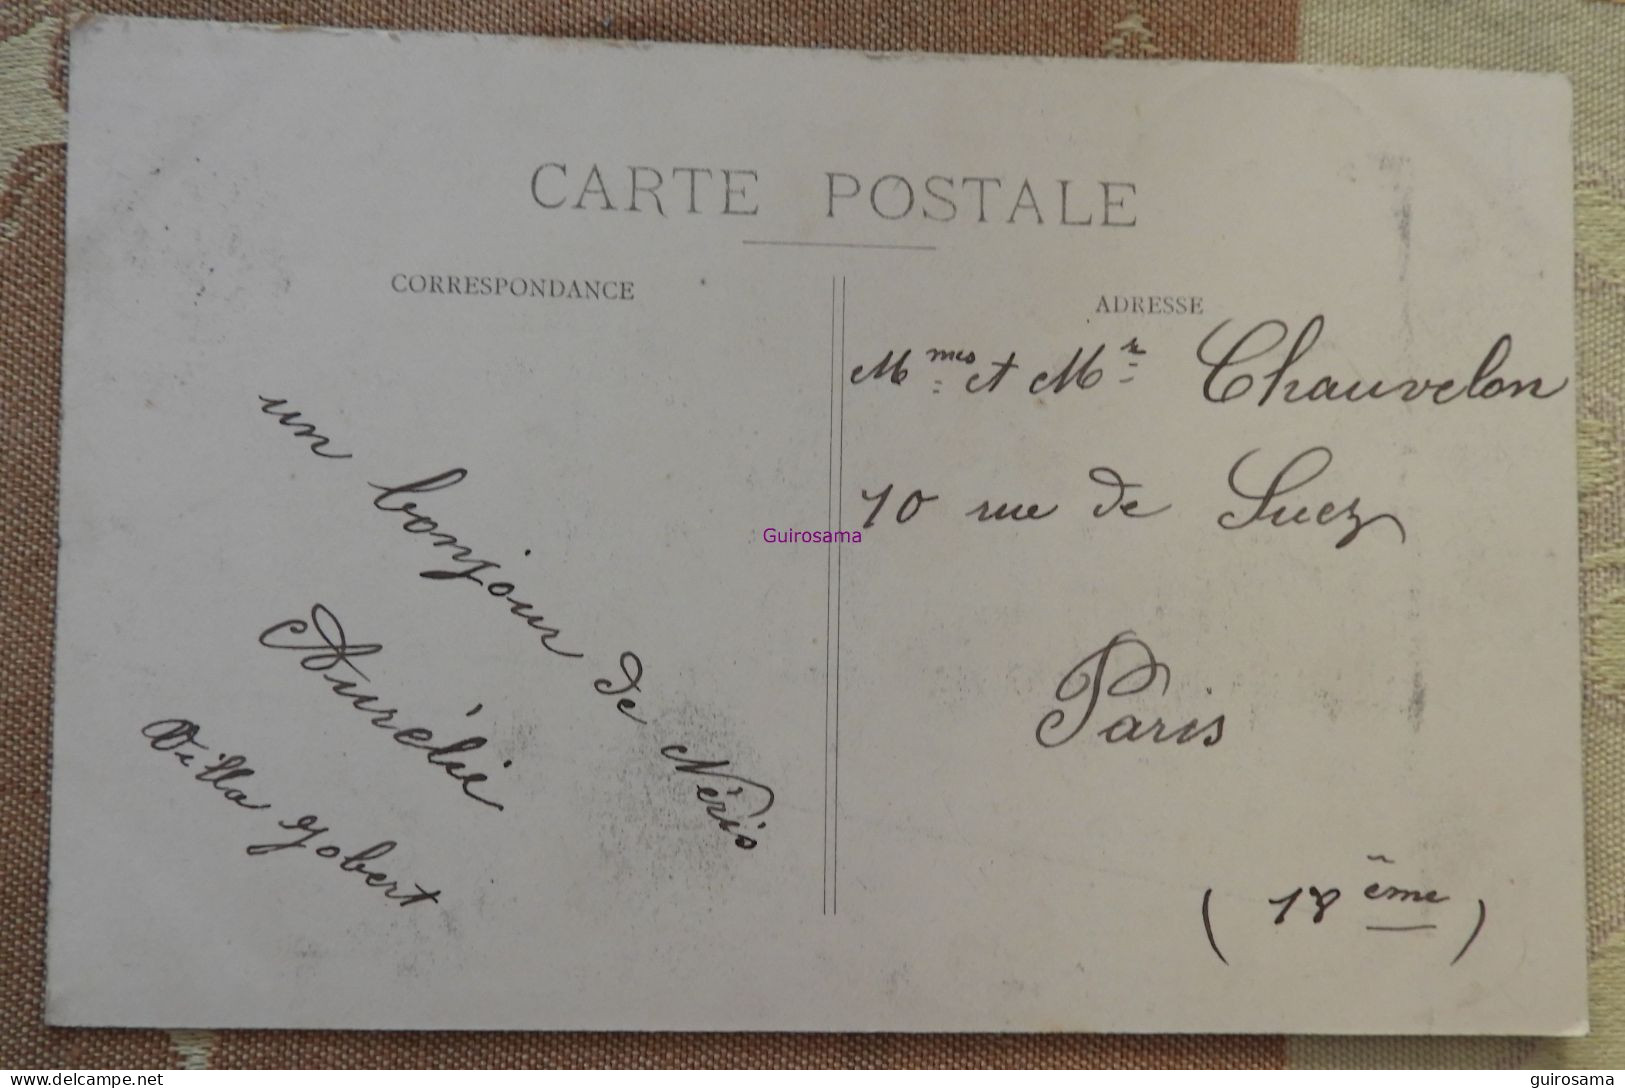 CARTE POSTALE
CORRESPONDANCE
ADRESSE
un bonjour de Néris
Aurélie
Villa Jobert
Mmes et Mr Chauvelon
10 rue de Suez
Paris
(18ème)
Guirosama
delcampe.net
guirosama